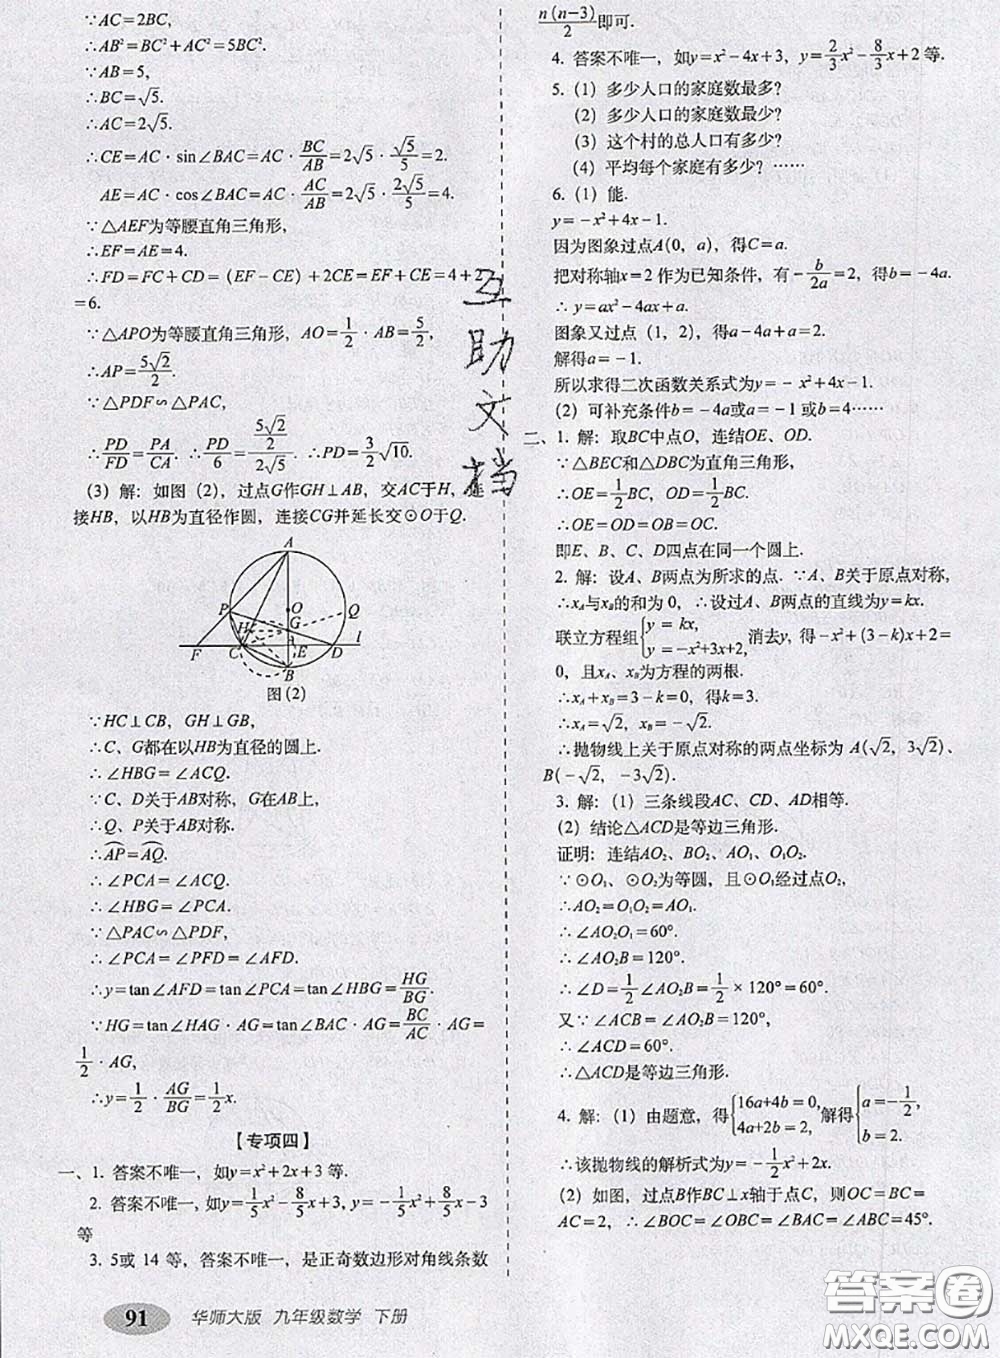 ∵AC=2BC,
∴AB²=BC²+AC²=5BC².
∵AB=5,
∴BC=√5.
∴AC=2√5.
∴CE=AC·sin∠BAC=AC·BC/AB=2√5·√5/5=2.
AE=AC·cos∠BAC=AC·AC/AB=2√5·2√5/5=4.
∵△AEF为等腰直角三角形,
∴EF=AE=4.
∴FD=FC+CD=(EF-CE)+2CE=EF+CE=4+2
=6.
∵△APO为等腰直角三角形, AO=1/2·AB=5/2,
∴AP=5√2/2.
∵△PDF∽△PAC,
∴PD/FD=PA/CA. ∴PD/6=(5√2/2)/(2√5). ∴PD=3/2√10.
(3) 解：如图 (2), 过点G作GH⊥AB, 交AC于H, 连
接HB, 以HB为直径作圆, 连接CG并延长交⊙O于Q.
A
P
O
Q
H
G
F
C
E
D
l
B
图(2)
∵HC⊥CB, GH⊥GB,
∴C、G都在以HB为直径的圆上.
∴∠HBG=∠ACQ.
∵C、D关于AB对称, G在AB上,
∴Q、P关于AB对称.
∴AP=AQ.
∴∠PCA=∠ACQ.
∴∠HBG=∠PCA.
∵△PAC∽△PDF,
∴∠PCA=∠PFD=∠AFD.
∴y=tan∠AFD=tan∠PCA=tan∠HBG=HG/BG.
∵HG=tan∠HAG·AG=tan∠BAC·AG=BC/AC·AG=
1/2·AG,
∴y=1/2·AG/BG=1/2x.
【专项四】
一、1. 答案不唯一, 如y=x²+2x+3 等.
2. 答案不唯一, 如y=1/5x²-8/5x+3, y=-1/5x²+8/5x-3
等
3. 5或 14 等, 答案不唯一, 是正奇数边形对角线条数
91 华师大版 九年级数学 下册
n(n-3)/2即可.
4. 答案不唯一, 如y=x²-4x+3, y=2/3x²-8/3x+2 等.
5. (1) 多少人口的家庭数最多?
(2) 多少人口的家庭数最少?
(3) 这个村的总人口有多少?
(4) 平均每个家庭有多少? ……
6. (1) 能.
y=-x²+4x-1.
因为图象过点A(0, a), 得C=a.
把对称轴x=2 作为已知条件, 有-b/2a=2, 得b=-4a.
∴y=ax²-4ax+a.
图象又过点 (1, 2), 得a-4a+a=2.
解得a=-1.
所以求得二次函数关系式为y=-x²+4x-1.
(2) 可补充条件b=-4a或a=-1 或b=4……
二、1. 解：取BC中点O, 连结OE、OD.
∵△BEC和△DBC为直角三角形,
∴OE=1/2BC, OD=1/2BC.
∴OE=OD=OB=OC.
即E、B、C、D四点在同一个圆上.
2. 解：设A、B两点为所求的点. ∵A、B关于原点对称,
∴xA与xB的和为 0, ∴设过A、B两点的直线为y=kx.
联立方程组{y=kx, y=-x²+3x+2, 消去y, 得-x²+(3-k)x+2=
0, 且xA、xB为方程的两根.
∴xA+xB=3-k=0, 得k=3.
∴xA=√2, xB=-√2.
∴抛物线上关于原点对称的两点坐标为 A(√2, 3√2)、
B(-√2, -3√2).
3. 解：(1) 三条线段AC、CD、AD相等.
(2) 结论△ACD是等边三角形.
证明：连结AO₂、BO₂、AO₁、O₁O₂.
∵⊙O₁、⊙O₂为等圆, 且⊙O₁经过点O₂,
∴AO₂=O₁O₂=AO₁.
∴∠AO₂O₁=60°.
∴∠AO₂B=120°.
∴∠D=1/2∠AO₂B=1/2×120°=60°.
又∵∠ACB=∠AO₂B=120°,
∴∠ACD=60°.
∴△ACD是等边三角形.
4. 解：(1) 由题意, 得{16a+4b=0, 4a+2b=2, 解得{a=-1/2, b=2.
∴该抛物线的解析式为y=-1/2x²+2x.
(2) 如图, 过点B作BC⊥x轴于点C, 则OC=BC=
AC=2, ∴∠BOC=∠OBC=∠BAC=45°.
互助文档
答案圈
MXQE.COM